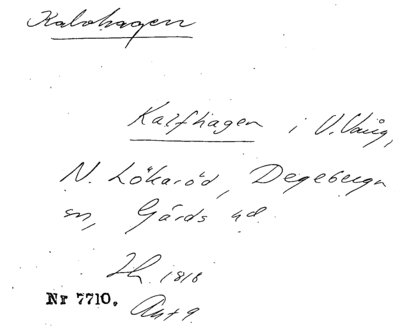 Kalvhagen
Kalfhagen i V. Vång,
N. Lökaröd, Degeberga
sn, Gärds hd.
Sk. 1818
Nr 7710. Akt 9.